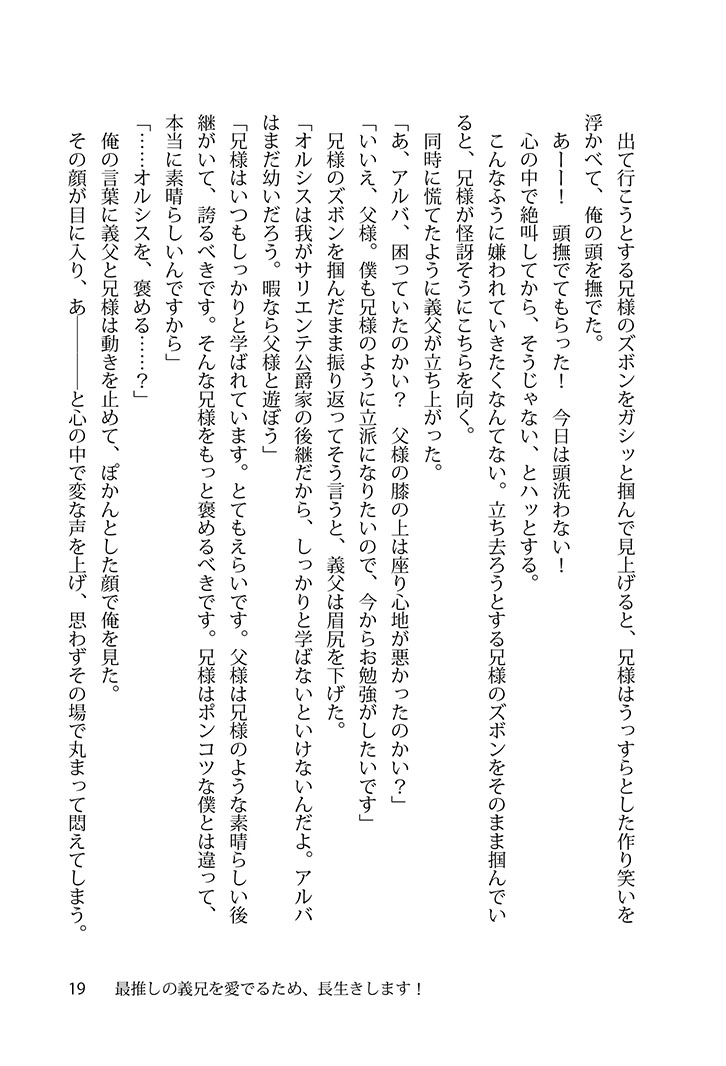 出て行こうとする兄様のズボンをガシッと掴んで見上げると、兄様はうっすらとした作り笑いを
浮かべて、俺の頭を撫でた。
　あーー！　頭撫でてもらった！　今日は頭洗わない！
　心の中で絶叫してから、そうじゃない、とハッとする。
　こんなふうに嫌われていきたくなんてない。立ち去ろうとする兄様のズボンをそのまま掴んでい
ると、兄様が怪訝そうにこちらを向く。
　同時に慌てたように義父が立ち上がった。
「あ、アルバ、困っていたのかい？　父様の膝の上は座り心地が悪かったのかい？」
「いいえ、父様。僕も兄様のように立派になりたいので、今からお勉強がしたいです」
　兄様のズボンを掴んだまま振り返ってそう言うと、義父は眉尻を下げた。
「オルシスは我がサリエンテ公爵家の後継だから、しっかりと学ばないといけないんだよ。アルバ
はまだ幼いだろう。暇なら父様と遊ぼう」
「兄様はいつもしっかりと学ばれています。とてもえらいです。父様は兄様のような素晴らしい後
継がいて、誇るべきです。そんな兄様をもっと褒めるべきです。兄様はポンコツな僕とは違って、
本当に素晴らしいんですから」
「……オルシスを、褒める……？」
　俺の言葉に義父と兄様は動きを止めて、ぽかんとした顔で俺を見た。
　その顔が目に入り、あ――――と心の中で変な声を上げ、思わずその場で丸まって悶えてしまう。
19　最推しの義兄を愛でるため、長生きします！